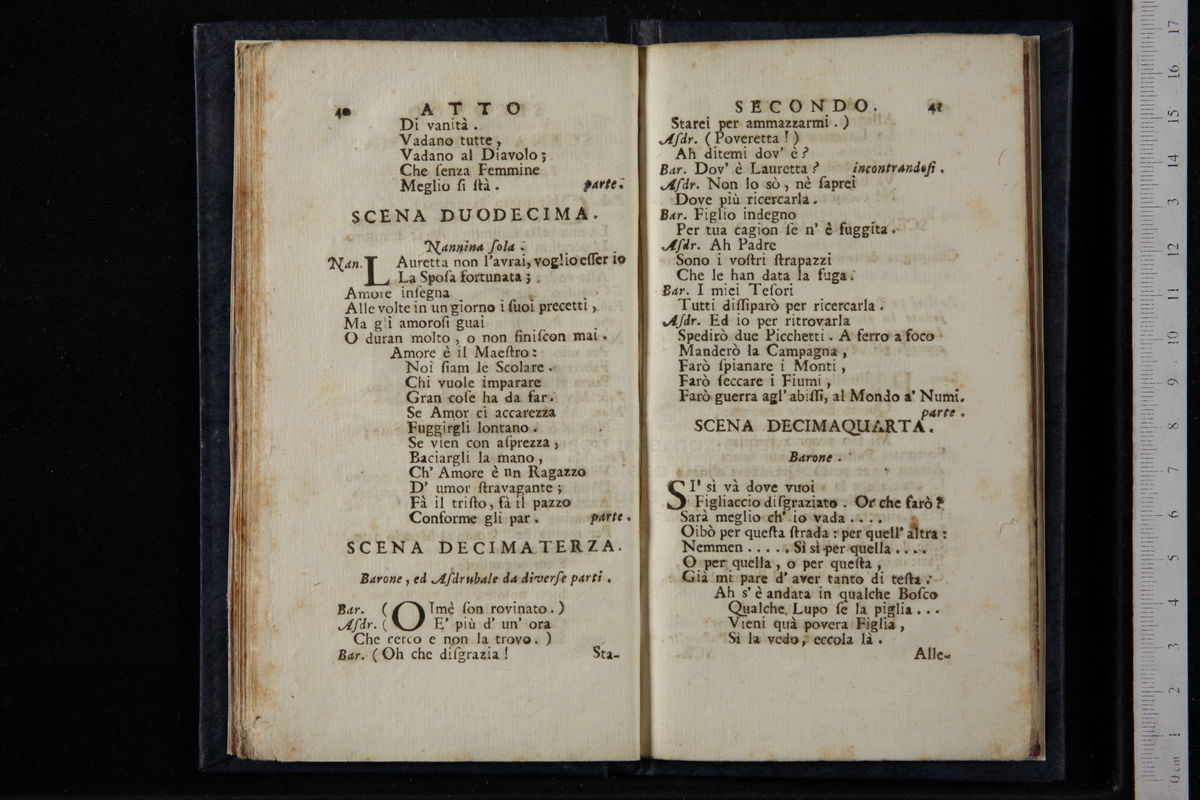 40 ATTO
Di vanità .
Vadano tutte,
Vadano al Diavolo;
Che ſenza Femmine
Meglio ſi ſtà . parte.
SCENA DUODECIMA.
Nannina ſola .
Nan. LAuretta non l'avrai, voglio eſſer io
La Spoſa fortunata ;
Amore inſegna
Alle volte in un giorno i ſuoi precetti ,
Ma gli amoroſi guai
O duran molto , o non finiſcon mai .
Amore è il Maeſtro :
Noi ſiam le Scolare .
Chi vuole imparare
Gran coſe ha da far .
Se Amor ci accarezza
Fuggirgli lontano .
Se vien con aſprezza ,
Baciargli la mano ,
Ch' Amore è un Ragazzo
D' umor ſtravagante ;
Fà il triſto, fà il pazzo
Conforme gli par . parte .
SCENA DECIMATERZA.
Barone, ed Aſdrubale da diverſe parti .
Bar. ( OImè ſon rovinato . )
Aſdr. ( E' più d' un' ora
Che cerco e non la trovo . )
Bar. ( Oh che diſgrazia !
Sta-
SECONDO. 41
Starei per ammazzarmi . )
Aſdr. ( Poveretta ! )
Ah ditemi dov' è ?
Bar. Dov' è Lauretta ? incontrandoſi .
Aſdr. Non lo sò , nè ſaprei
Dove più ricercarla .
Bar. Figlio indegno
Per tua cagion ſe n' è fuggita .
Aſdr. Ah Padre
Sono i voſtri ſtrapazzi
Che le han data la fuga .
Bar. I miei Teſori
Tutti diſſiparò per ricercarla .
Aſdr. Ed io per ritrovarla
Spedirò due Picchetti . A ferro a foco
Manderò la Campagna ,
Farò ſpianare i Monti ,
Farò ſeccare i Fiumi ,
Farò guerra agl' abiſſi, al Mondo a' Numi.
parte .
SCENA DECIMAQUARTA.
Barone .
SI' sì và dove vuoi
Figliaccio diſgraziato . Or che farò ?
Sarà meglio ch' io vada . . . .
Oibò per queſta ſtrada : per quell' altra :
Nemmen . . . . . Sì sì per quella . . . .
O per quella , o per queſta ,
Già mi pare d' aver tanto di teſta .
Ah s' è andata in qualche Boſco
Qualche Lupo ſe la piglia . . .
Vieni quà povera Figlia ,
Sì la vedo , eccola là .
Alle-
0 cm 1 2 3 4 5 6 7 8 9 10 11 12 13 14 15 16 17